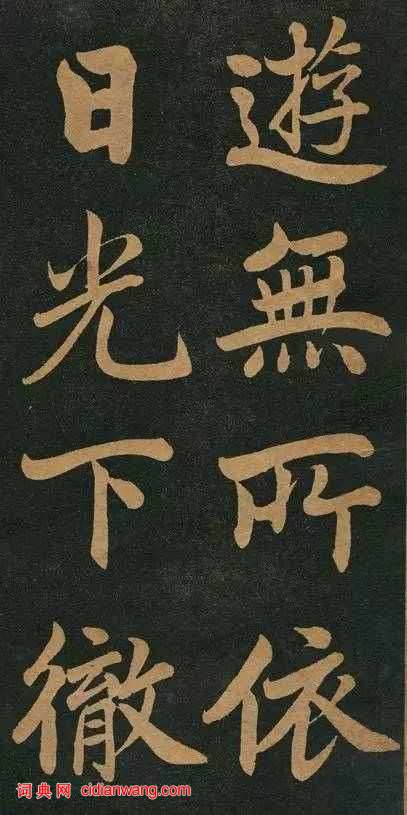 遊無所依
日光下徹
词典网 cidianwang.com